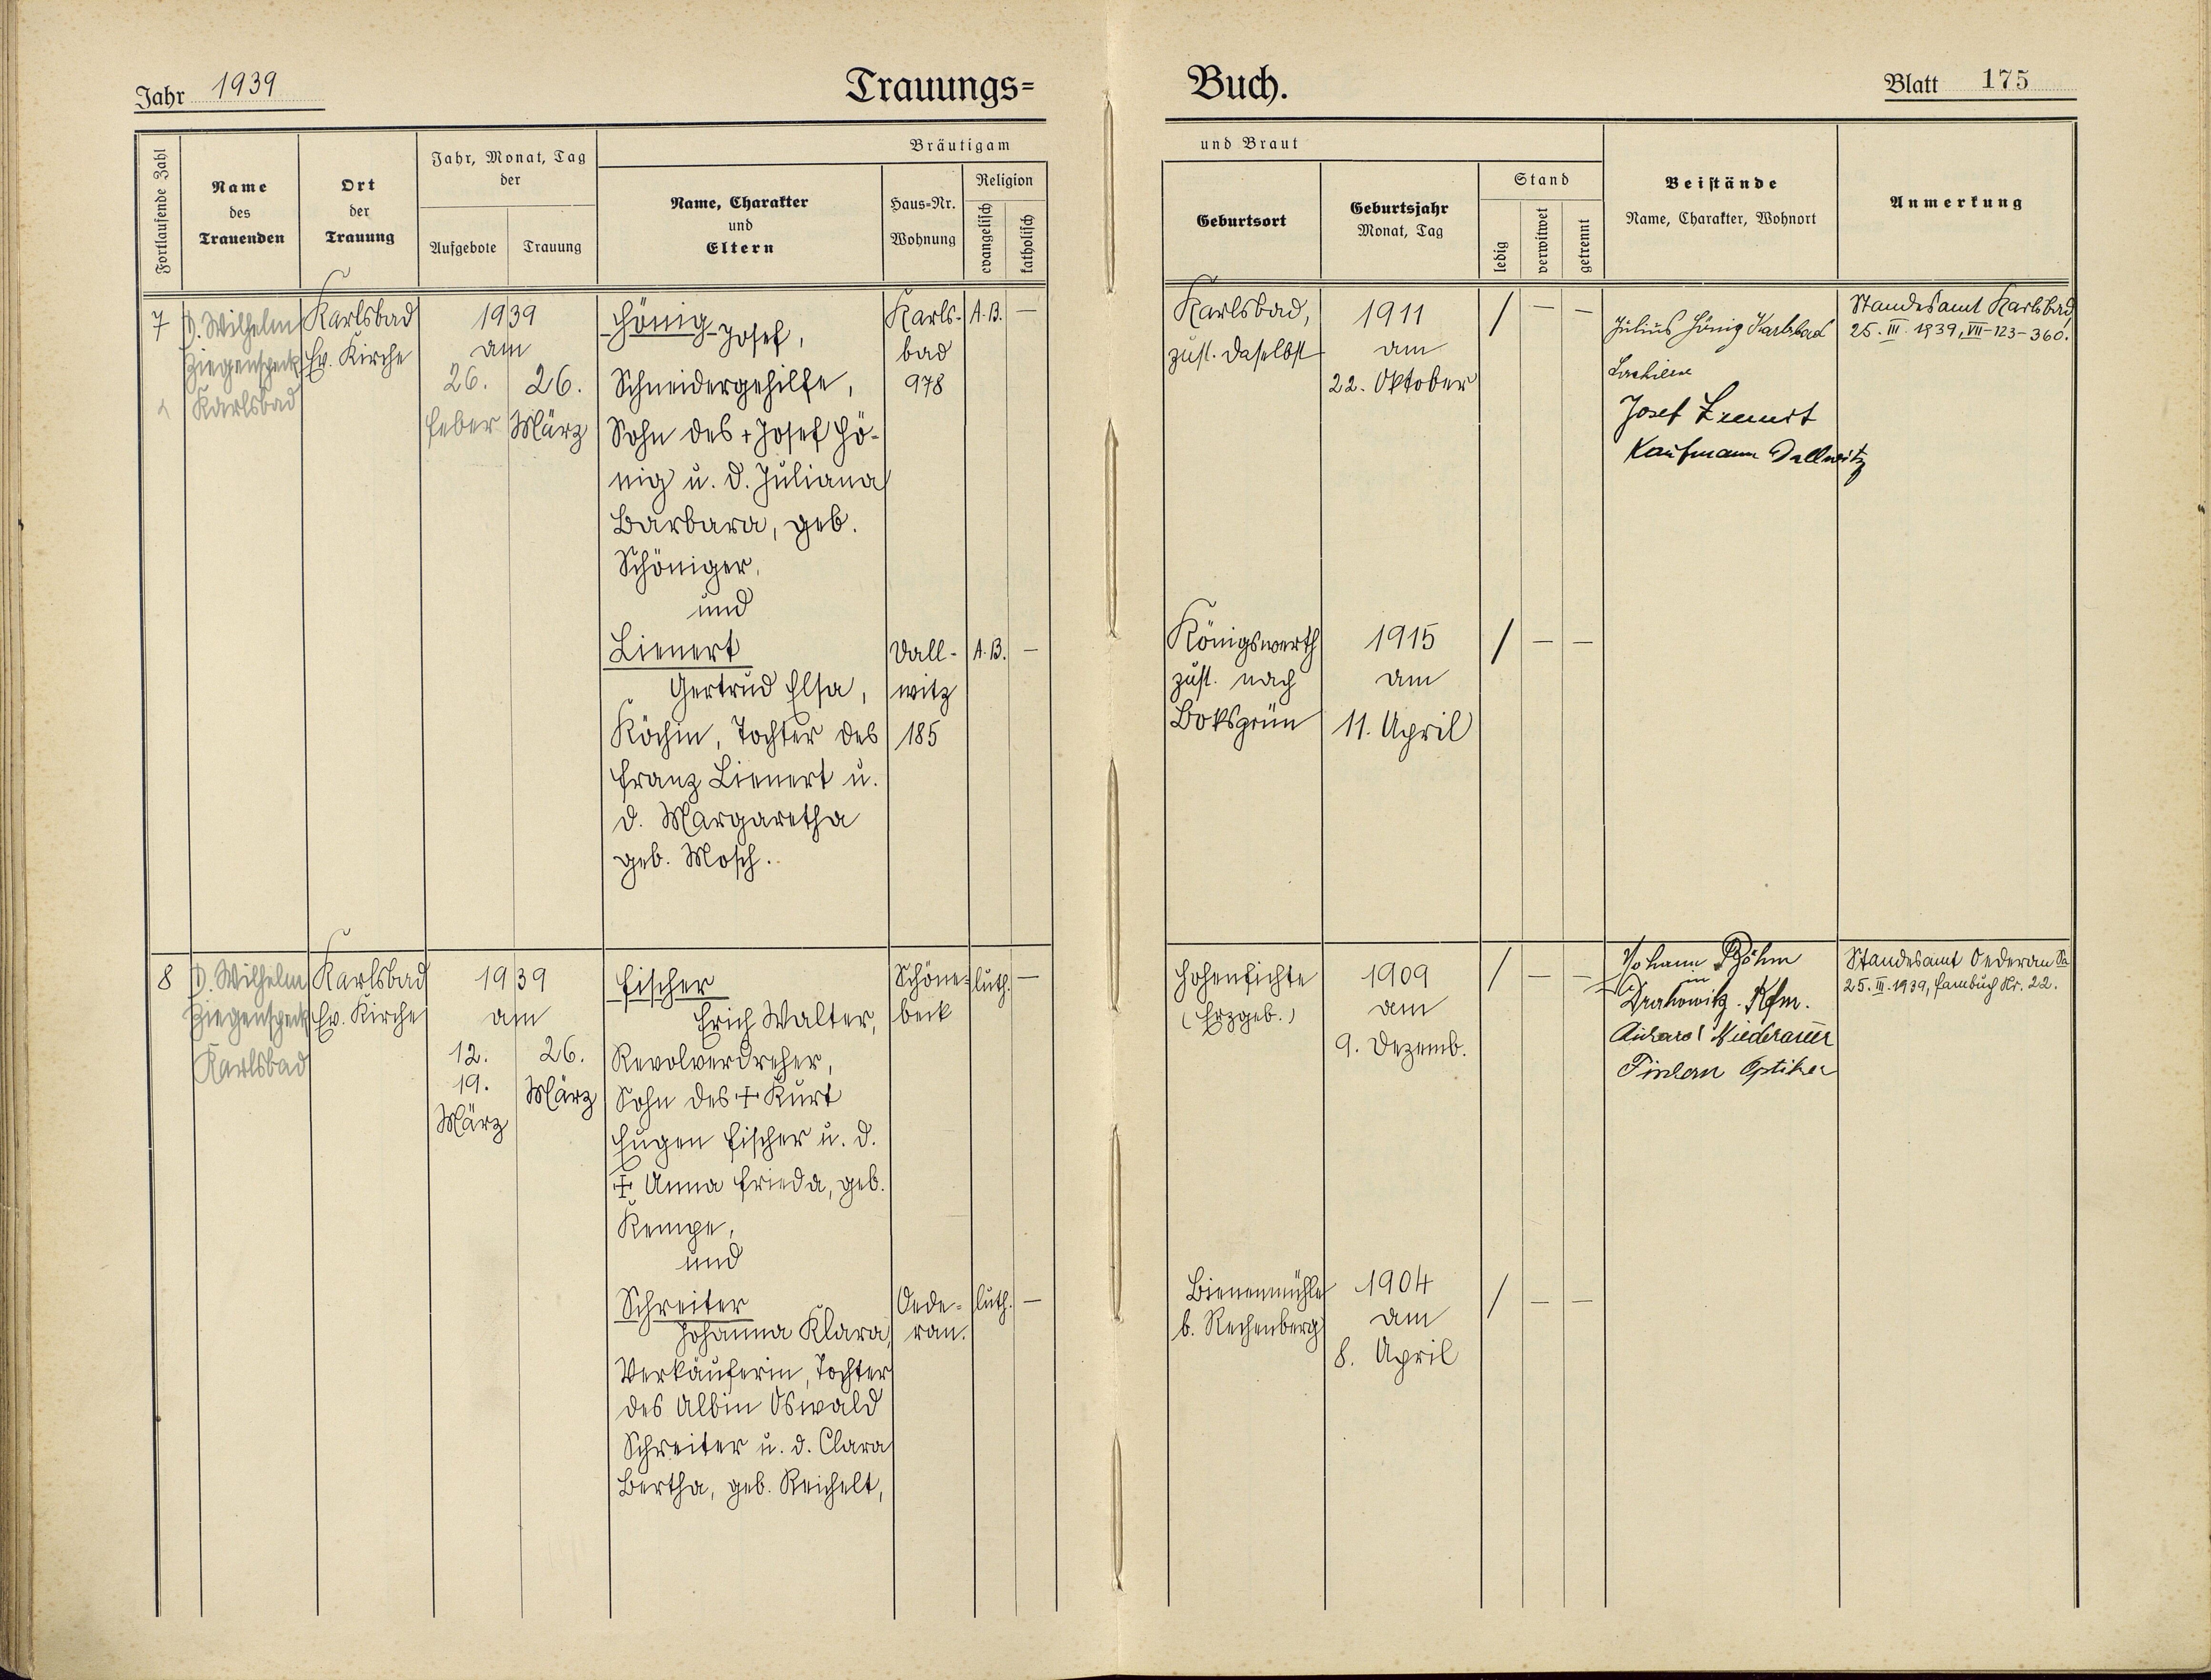 Jahr 1939
Trauungs=
Buch.
Blatt 175
Fortlaufende Zahl
Name
des
Trauenden
Ort
der
Trauung
Jahr, Monat, Tag
der
Aufgebote
Trauung
Bräutigam
Name, Charakter
und
Eltern
Haus=Nr.
Wohnung
Religion
evangelisch
katholisch
und Braut
Geburtsort
Geburtsjahr
Monat, Tag
Stand
ledig
verwitwet
getrennt
Beistände
Name, Charakter, Wohnort
Anmerkung
7
D. Wilhelm
Ziegenspeck
Karlsbad
Karlsbad
Ev. Kirche
1939
am
26.
Feber
26.
März
Hönig Josef,
Schneidergehilfe,
Sohn des + Josef Hö-
nig u. d. Juliana
Barbara, geb.
Schöniger,
und
Lienert
Gertrud Elsa,
Köchin, Tochter des
Franz Lienert u.
d. Margaretha
geb. Mosch.
Karls-
bad
978
A.B.
—
Dall-
witz
185
A.B.
—
Karlsbad,
zust. daselbst
1911
am
22. Oktober
/ — —
Königswerth
zust. nach
Boksgrün
1915
am
11. April
/ — —
Julius Hönig Karlsbad
Josef Lienert
Kaufmann Dallwitz
Standesamt Karlsbad,
25. III. 1939, VII-123-360.
8
D. Wilhelm
Ziegenspeck
Karlsbad
Karlsbad
Ev. Kirche
1939
am
12.
19.
März
26.
März
Fischer
Erich Walter,
Revolverdreher,
Sohn des + Kurt
Eugen Fischer u. d.
+ Anna Frieda, geb.
Kempe,
und
Schreiter
Johanna Klara,
Verkäuferin, Tochter
des Albin Oswald
Schreiter u. d. Clara
Bertha, geb. Reichelt,
Schöne=
beck
luth.
—
Oede=
ran.
luth.
—
Hohenfichte
(Erzgeb.)
1909
am
9. Dezemb.
/ — —
Bienenmühle
b. Rechenberg
1904
am
8. April
/ — —
Johann Böhm
in
Drahowitz. Kfm.
Richard Niederauer
Fischern Optiker
Standesamt Oederan Sa.
25. III. 1939, Fambuch Nr. 22.